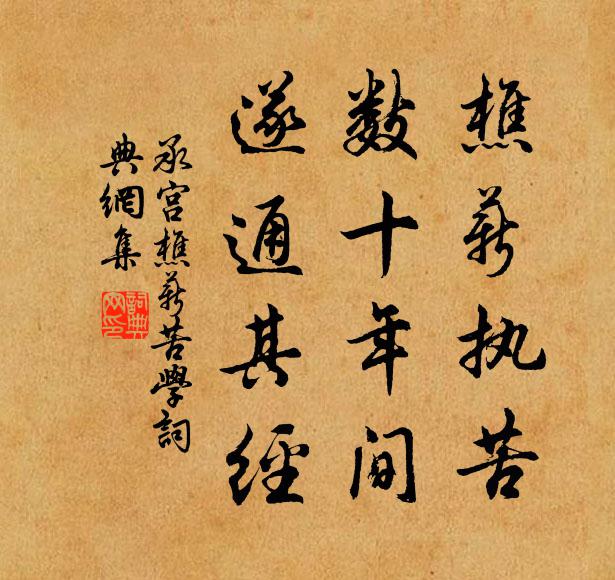 樵薪执苦
数十年间
遂通其經
承宫樵薪苦學詞
典網集
詞典網印